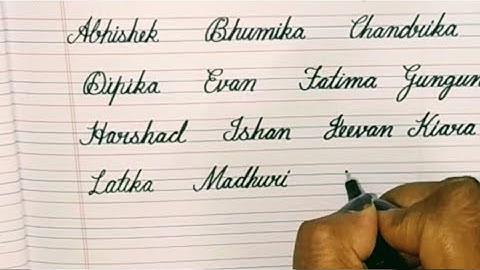 Abhishek Bhumika Chandrika
Dipika Evan Fatima Gungun
Harshad Ishan Jeevan Kiara
Latika Madhuri